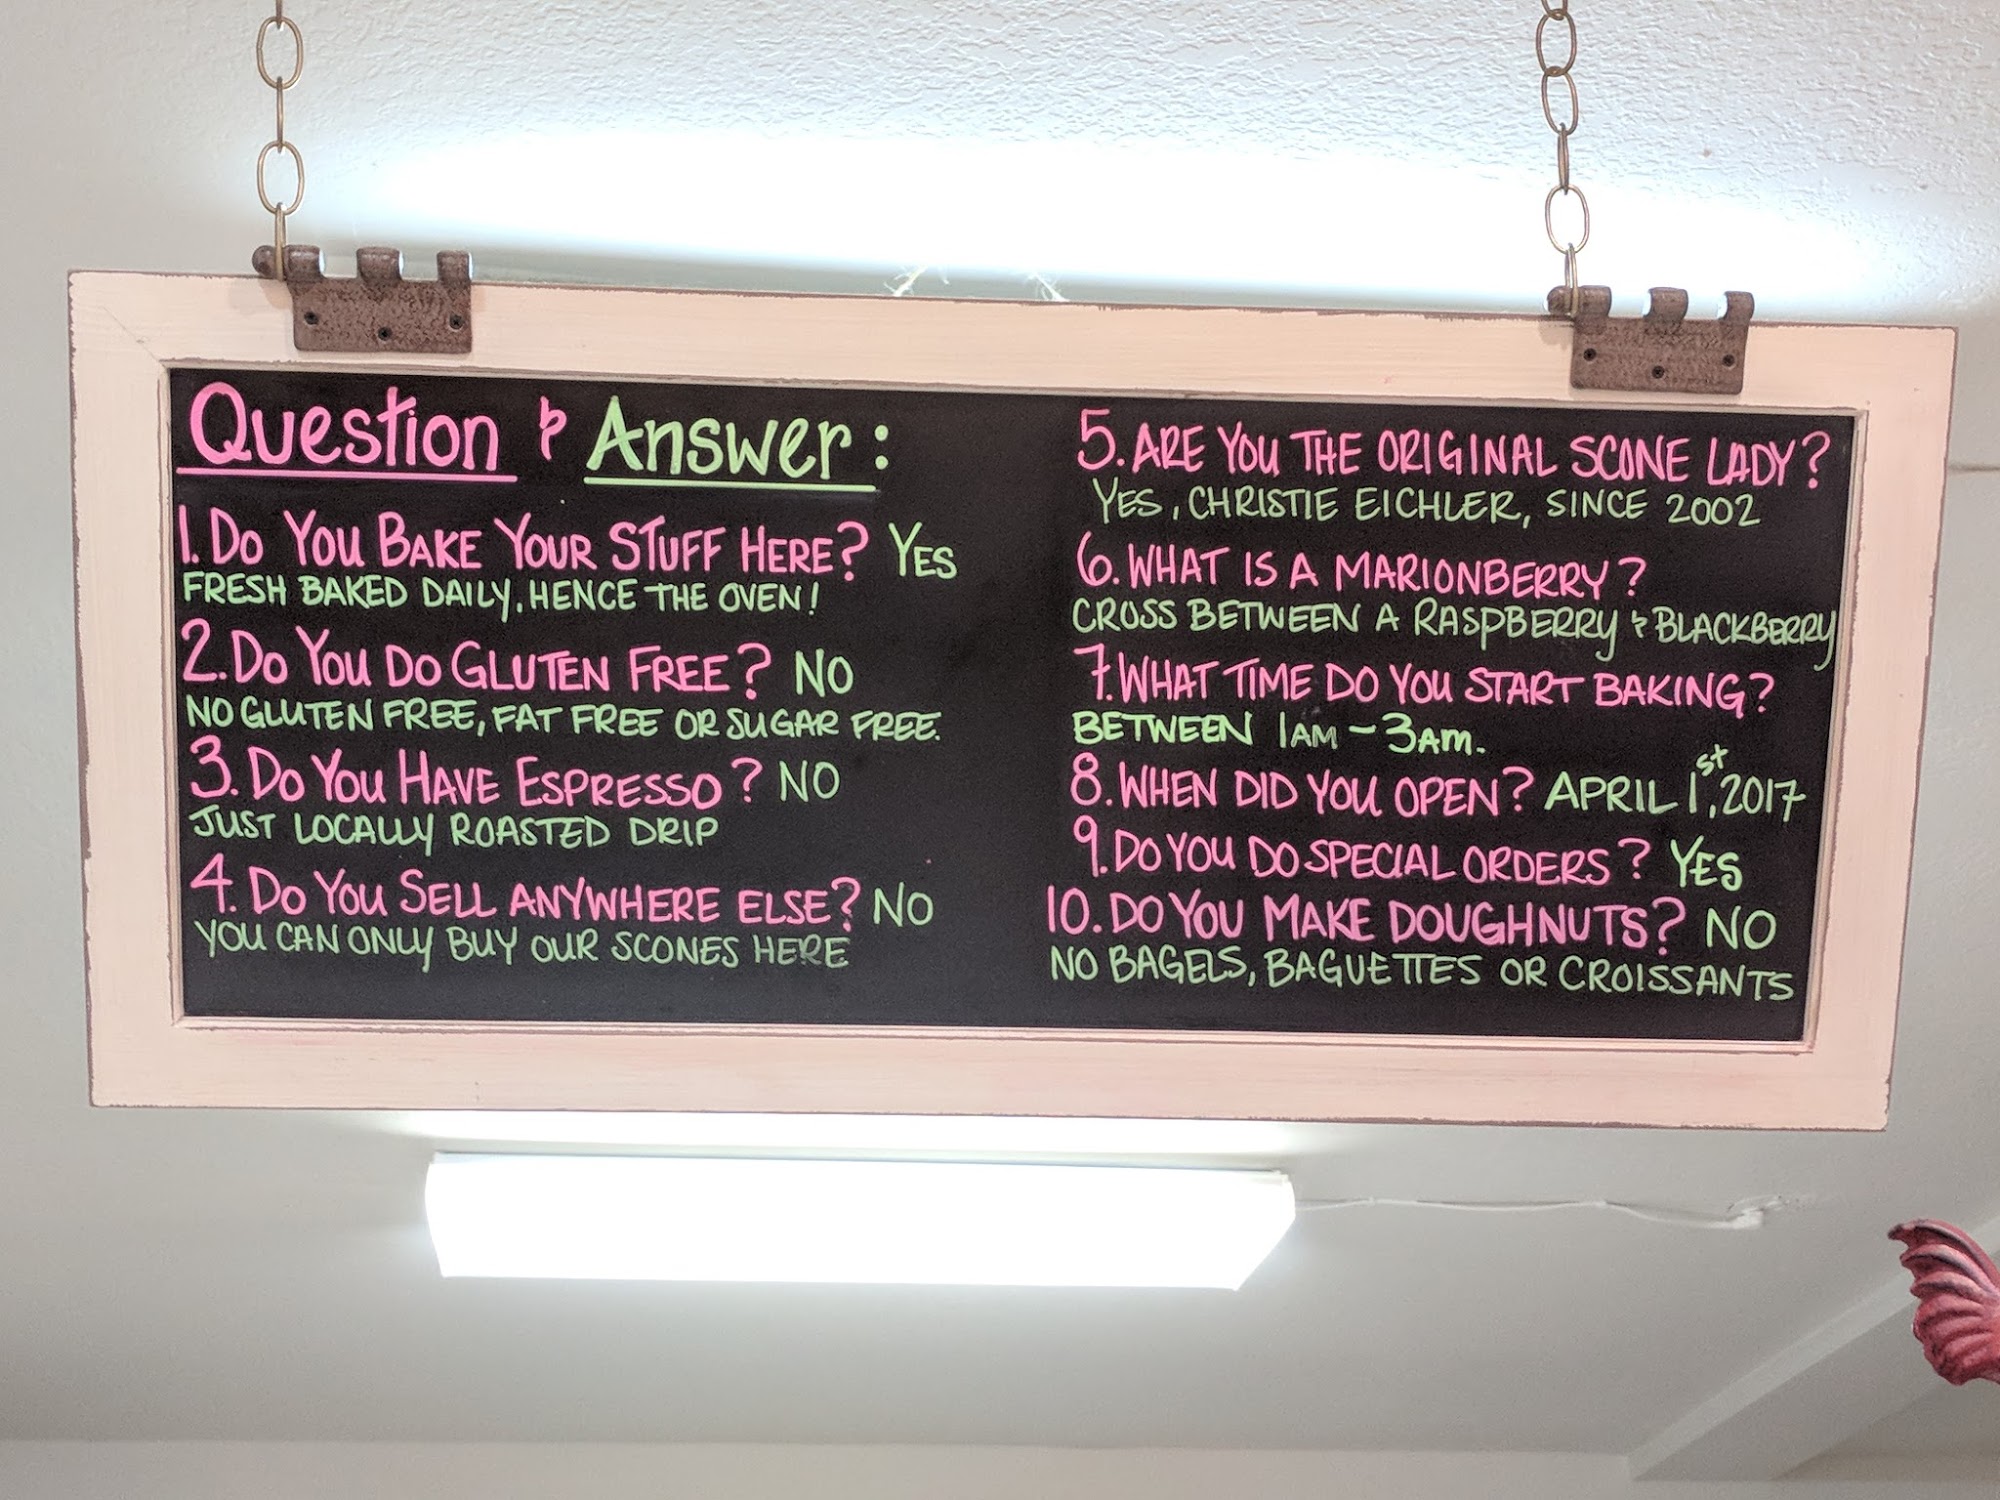 Question & Answer:
1. Do You Bake Your Stuff Here? Yes
Fresh Baked Daily, Hence the Oven!
2. Do You Do Gluten Free? No
No Gluten Free, Fat Free or Sugar Free.
3. Do You Have Espresso? No
Just Locally Roasted Drip
4. Do You Sell Anywhere Else? No
You Can Only Buy Our Scones Here
5. Are You the Original Scone Lady?
Yes, Christie Eichler, Since 2002
6. What is a Marionberry?
Cross Between a Raspberry & Blackberry
7. What Time Do You Start Baking?
Between 1am - 3am.
8. When Did You Open? April 1st, 2017
9. Do You Do Special Orders? Yes
10. Do You Make Doughnuts? No
No Bagels, Baguettes or Croissants